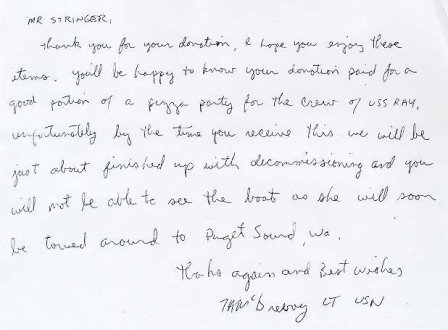 MR STRINGER,
Thank you for your donation, I hope you enjoy these
items. You'll be happy to know your donation paid for a
good portion of a pizza party for the crew of USS RAY.
unfortunately by the time you receive this we will be
just about finished up with decommissioning and you
will not be able to see the boat as she will soon
be towed around to Puget Sound, Wa.
Thanks again and Best wishes
LT USN